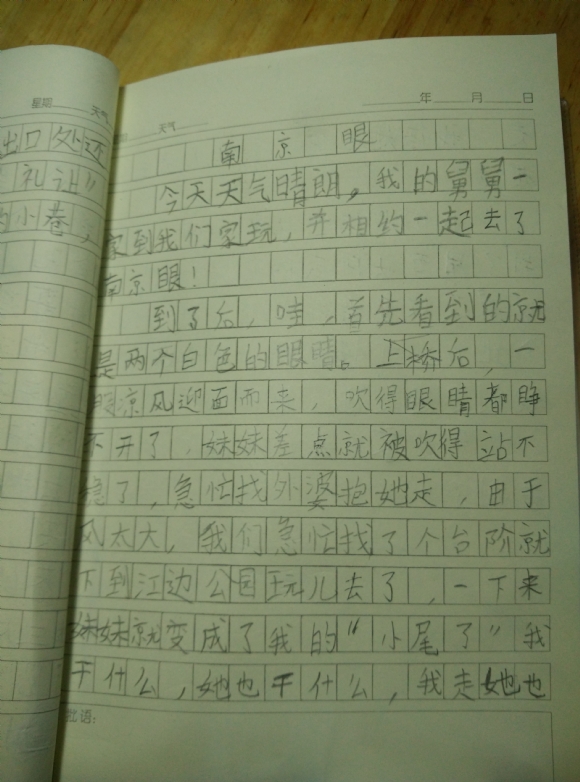 星期 天气
出口处还
礼让”
的小巷，
天气 年 月 日
南京眼
今天天气晴朗，我的舅舅一
家到我们家玩，并相约一起去了
南京眼！
到了后，哇，首先看到的就
是两个白色的眼睛。上桥后，一
凉风迎面而来，吹得眼睛都睁
不开了，妹妹差点就被吹得站不
稳了，急忙找外婆抱她走，由于
风太大，我们急忙找了个台阶就
下到江边公园玩儿去了，一下来
妹妹就变成了我的“小尾了”我
干什么，她也干什么，我走她也
批语：